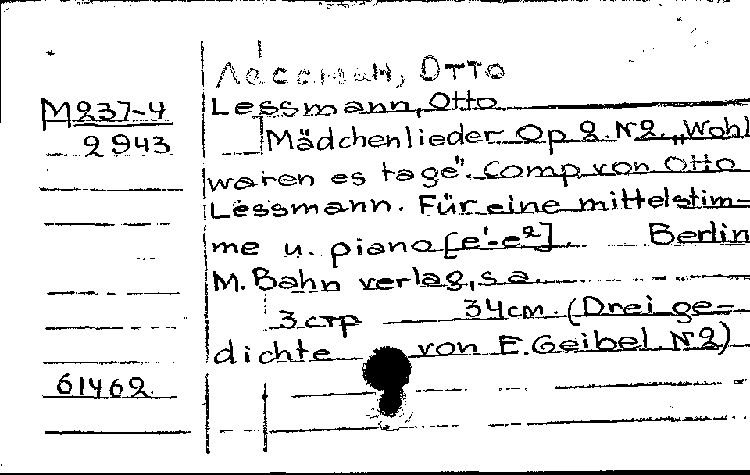 Лессман, Отто
M237-4
2943
Lessmann, Otto
Mädchenlieder Op 2. N2. „Wohl
waren es tage". Comp von Otto
Lessmann. Für eine mittelstim-
me u. piano [e¹-e²]. Berlin
M. Bahn verlag, s a.
3 стр 34cm. (Drei ge-
dichte von E. Geibel N2)
61462.